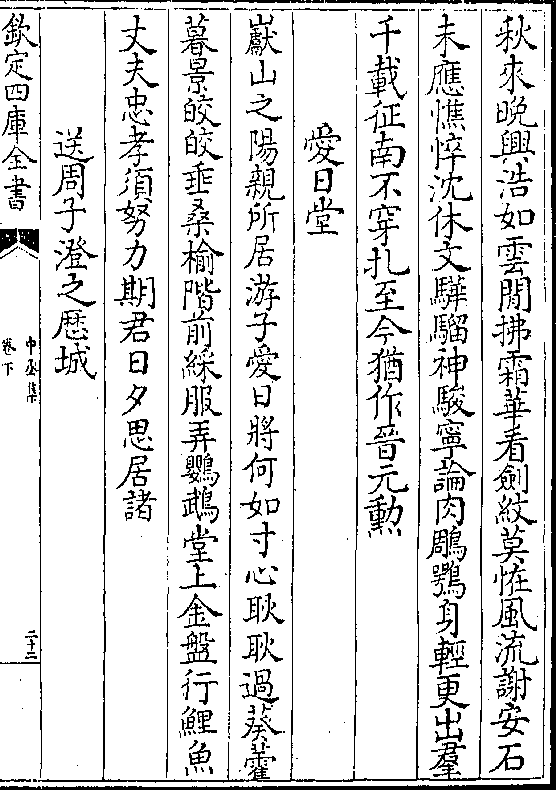 秋來晚興浩如雲閒拂霜華看劍紋莫恠風流謝安石
未應憔悴沈休文驊騮神駿寧論肉鵰鶚身輕更出羣
千載征南不穿扎至今猶作晉元勲
愛日堂
巘山之陽親所居游子愛日將何如寸心耿耿過葵藿
暮景皎皎垂桑榆階前綵服弄鸚鵡堂上金盤行鯉魚
丈夫忠孝須努力期君日夕思居諸
送周子澄之歴城
欽定四庫全書
中丞集
卷下
二十二